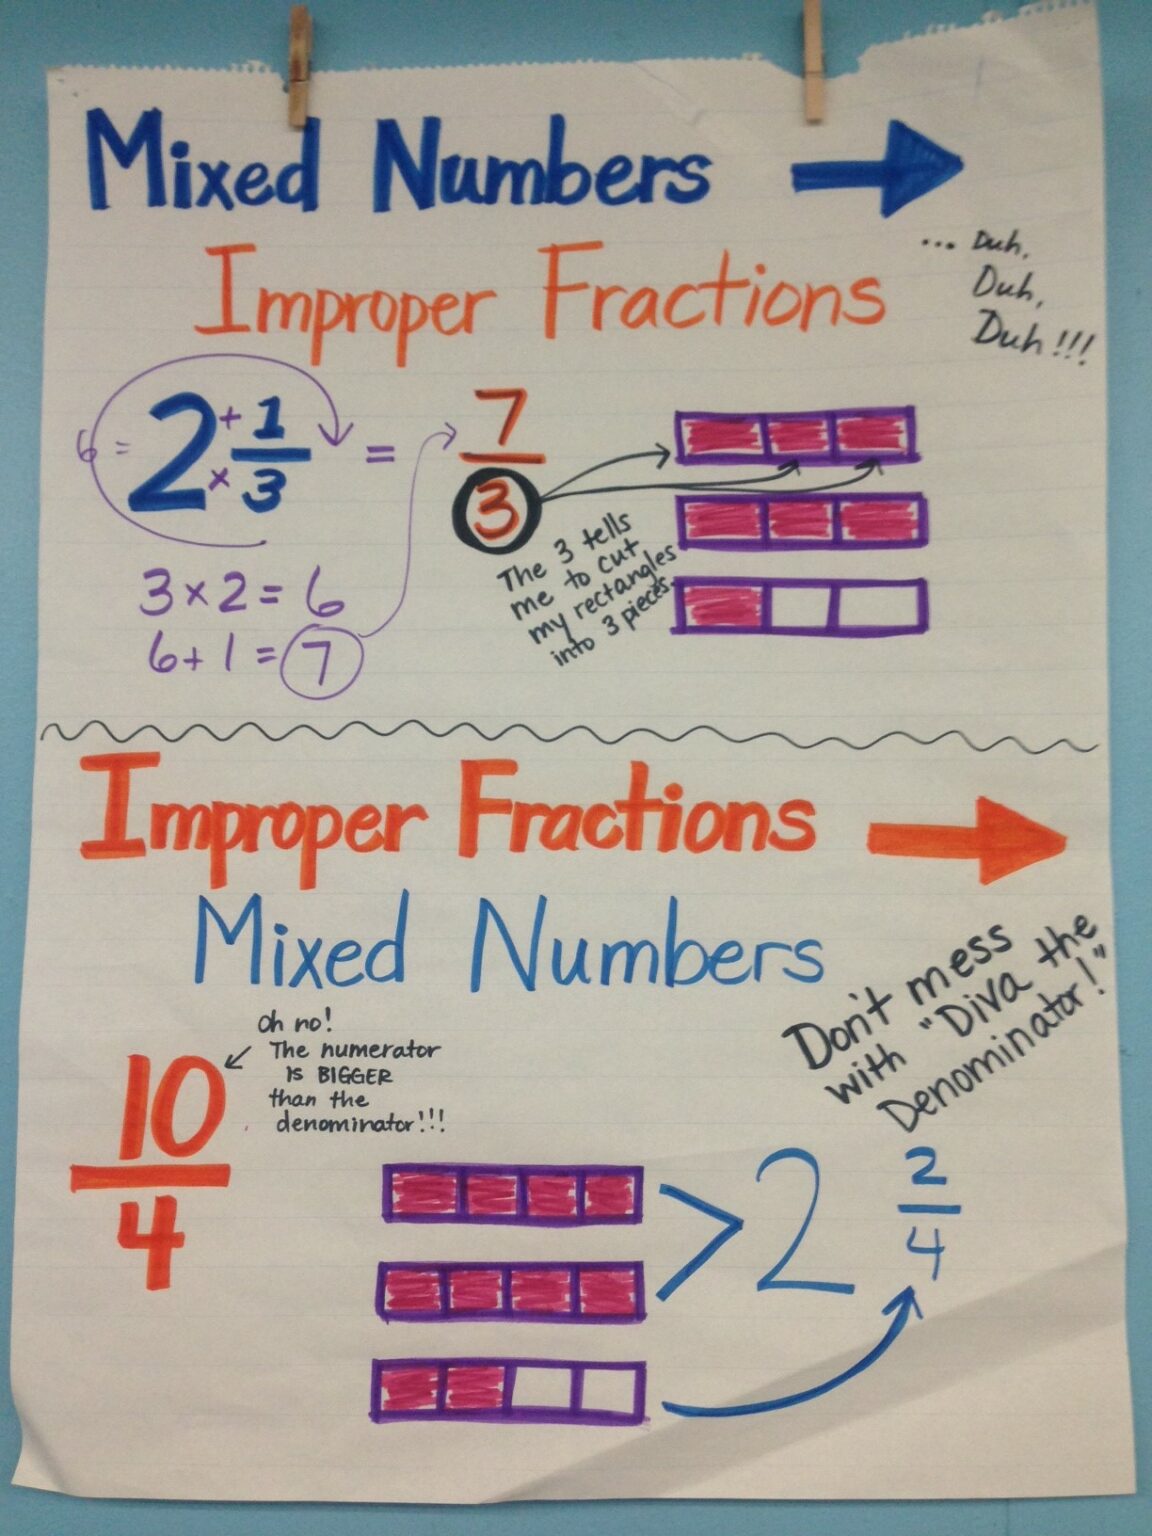 Mixed Numbers
Improper Fractions
... Duh,
Duh,
Duh!!!
6 = 2 + 1/3 = 7/3
×
3 × 2 = 6
6 + 1 = 7
The 3 tells
me to cut
my rectangles
into 3 pieces.
Improper Fractions
Mixed Numbers
Don't mess
with "Diva the
Denominator!"
Oh no!
The numerator
is BIGGER
than the
denominator!!!
10/4
2 2/4